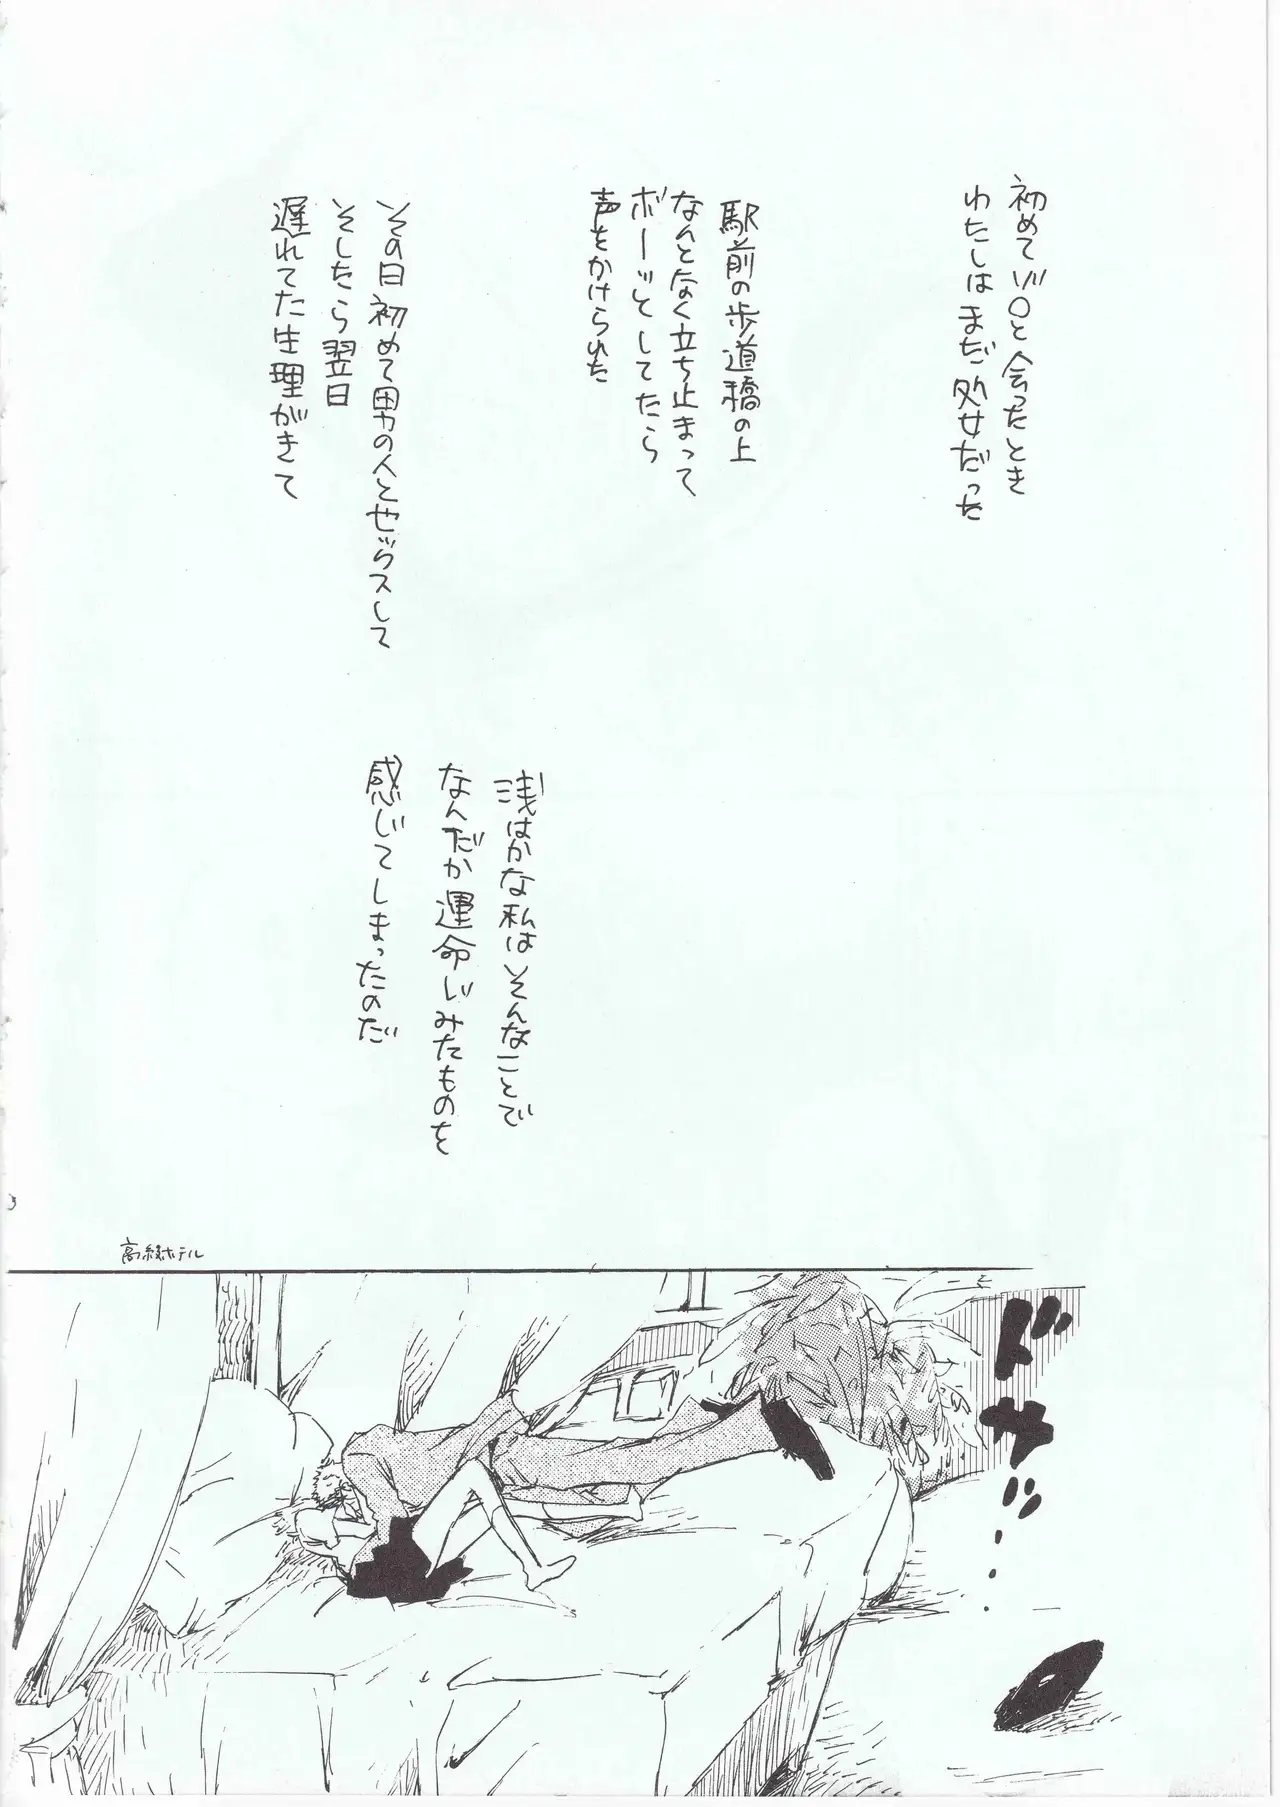 初めてゾロと会ったとき
わたしはまだ処女だった
駅前の歩道橋の上
なんとなく立ち止まって
ボーッとしてたら
声をかけられた
その日初めて男の人とセックスして
そしたら翌日
遅れてた生理がきて
浅はかな私はそんなことで
なんだか運命じみたものを
感じてしまったのだ
高級ホテル
ドサッ...